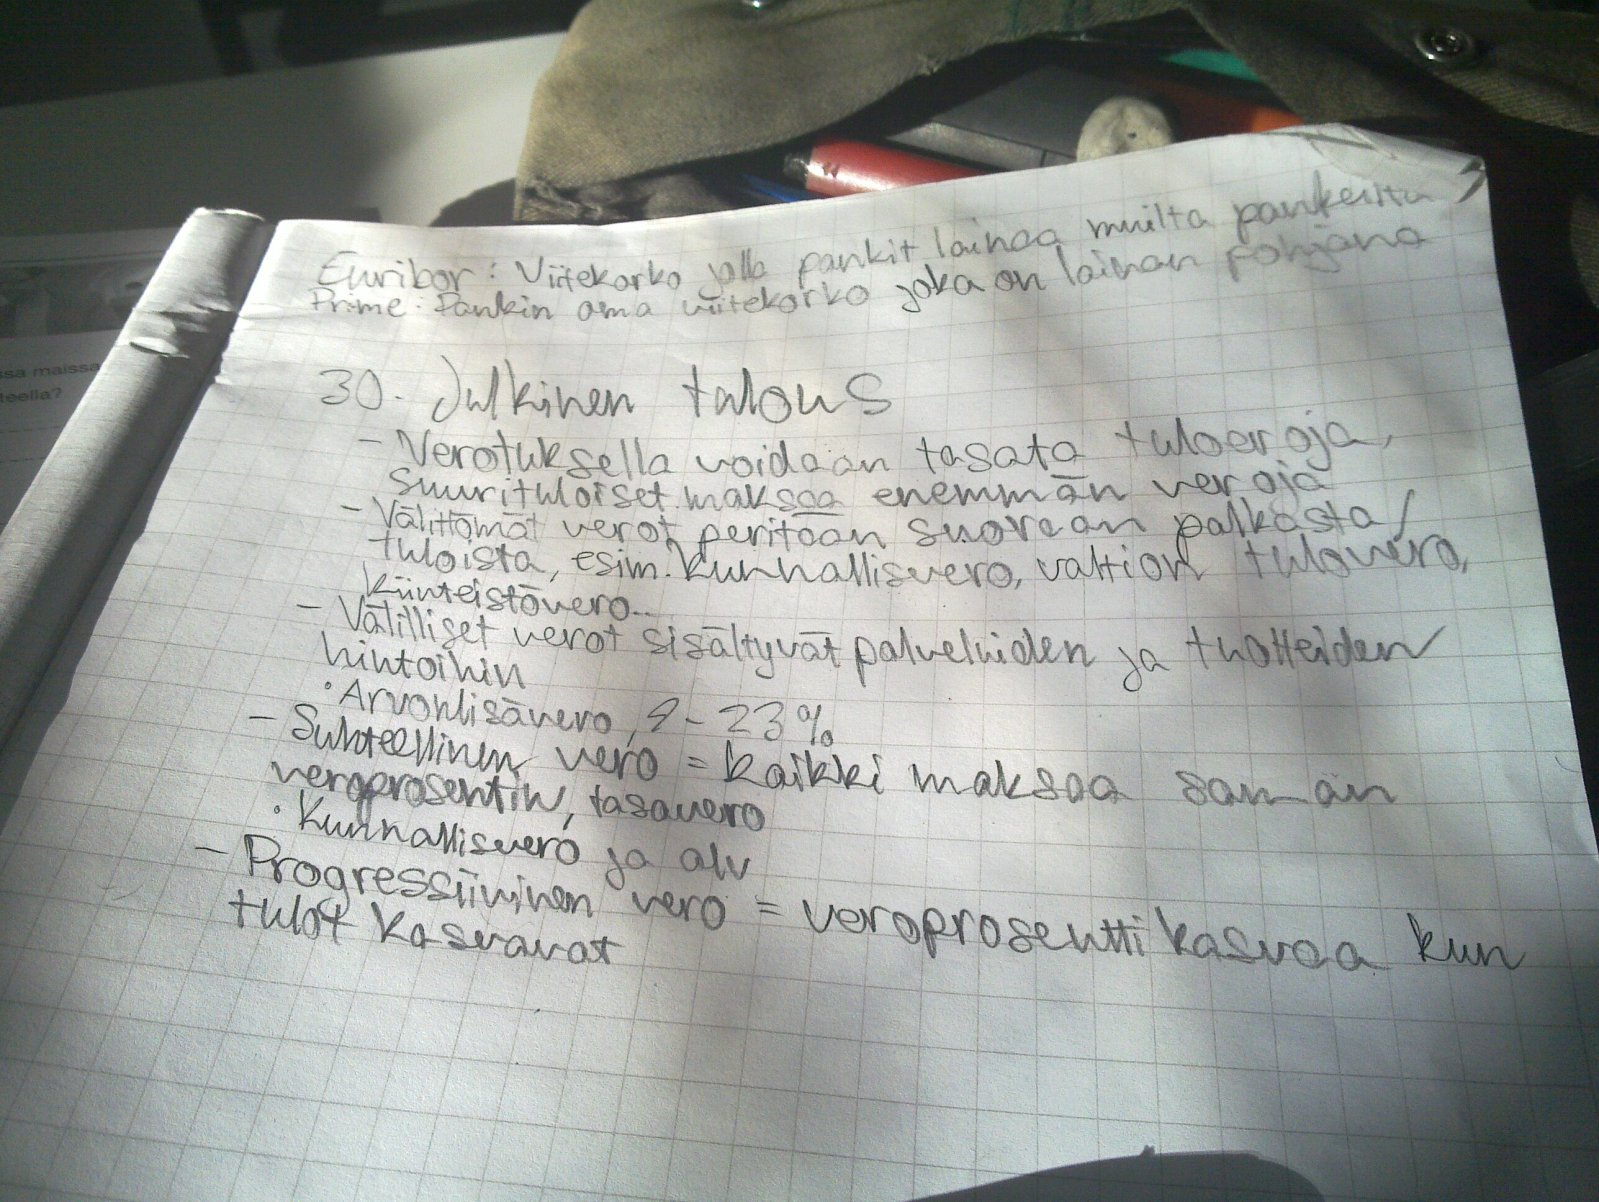 Euribor: Viitekorko jolla pankit lainaa muilta pankeilta
Prime: Pankin oma viitekorko joka on lainan pohjana
30. Julkinen talous
- Verotuksella voidaan tasata tuloeroja,
suurituloiset maksaa enemmän veroja
- Välittömät verot peritään suoraan palkasta/
tuloista, esim. kunnallisvero, valtion tulovero,
kiinteistövero...
- Välilliset verot sisältyvät palveluiden ja tuotteiden
hintoihin
• Arvonlisävero, 9-23%
- Suhteellinen vero = kaikki maksaa saman
veroprosentin, tasavero
• Kunnallisvero ja alv
- Progressiivinen vero = veroprosentti kasvaa kun
tulot kasvavat
ssa maissa
teella?